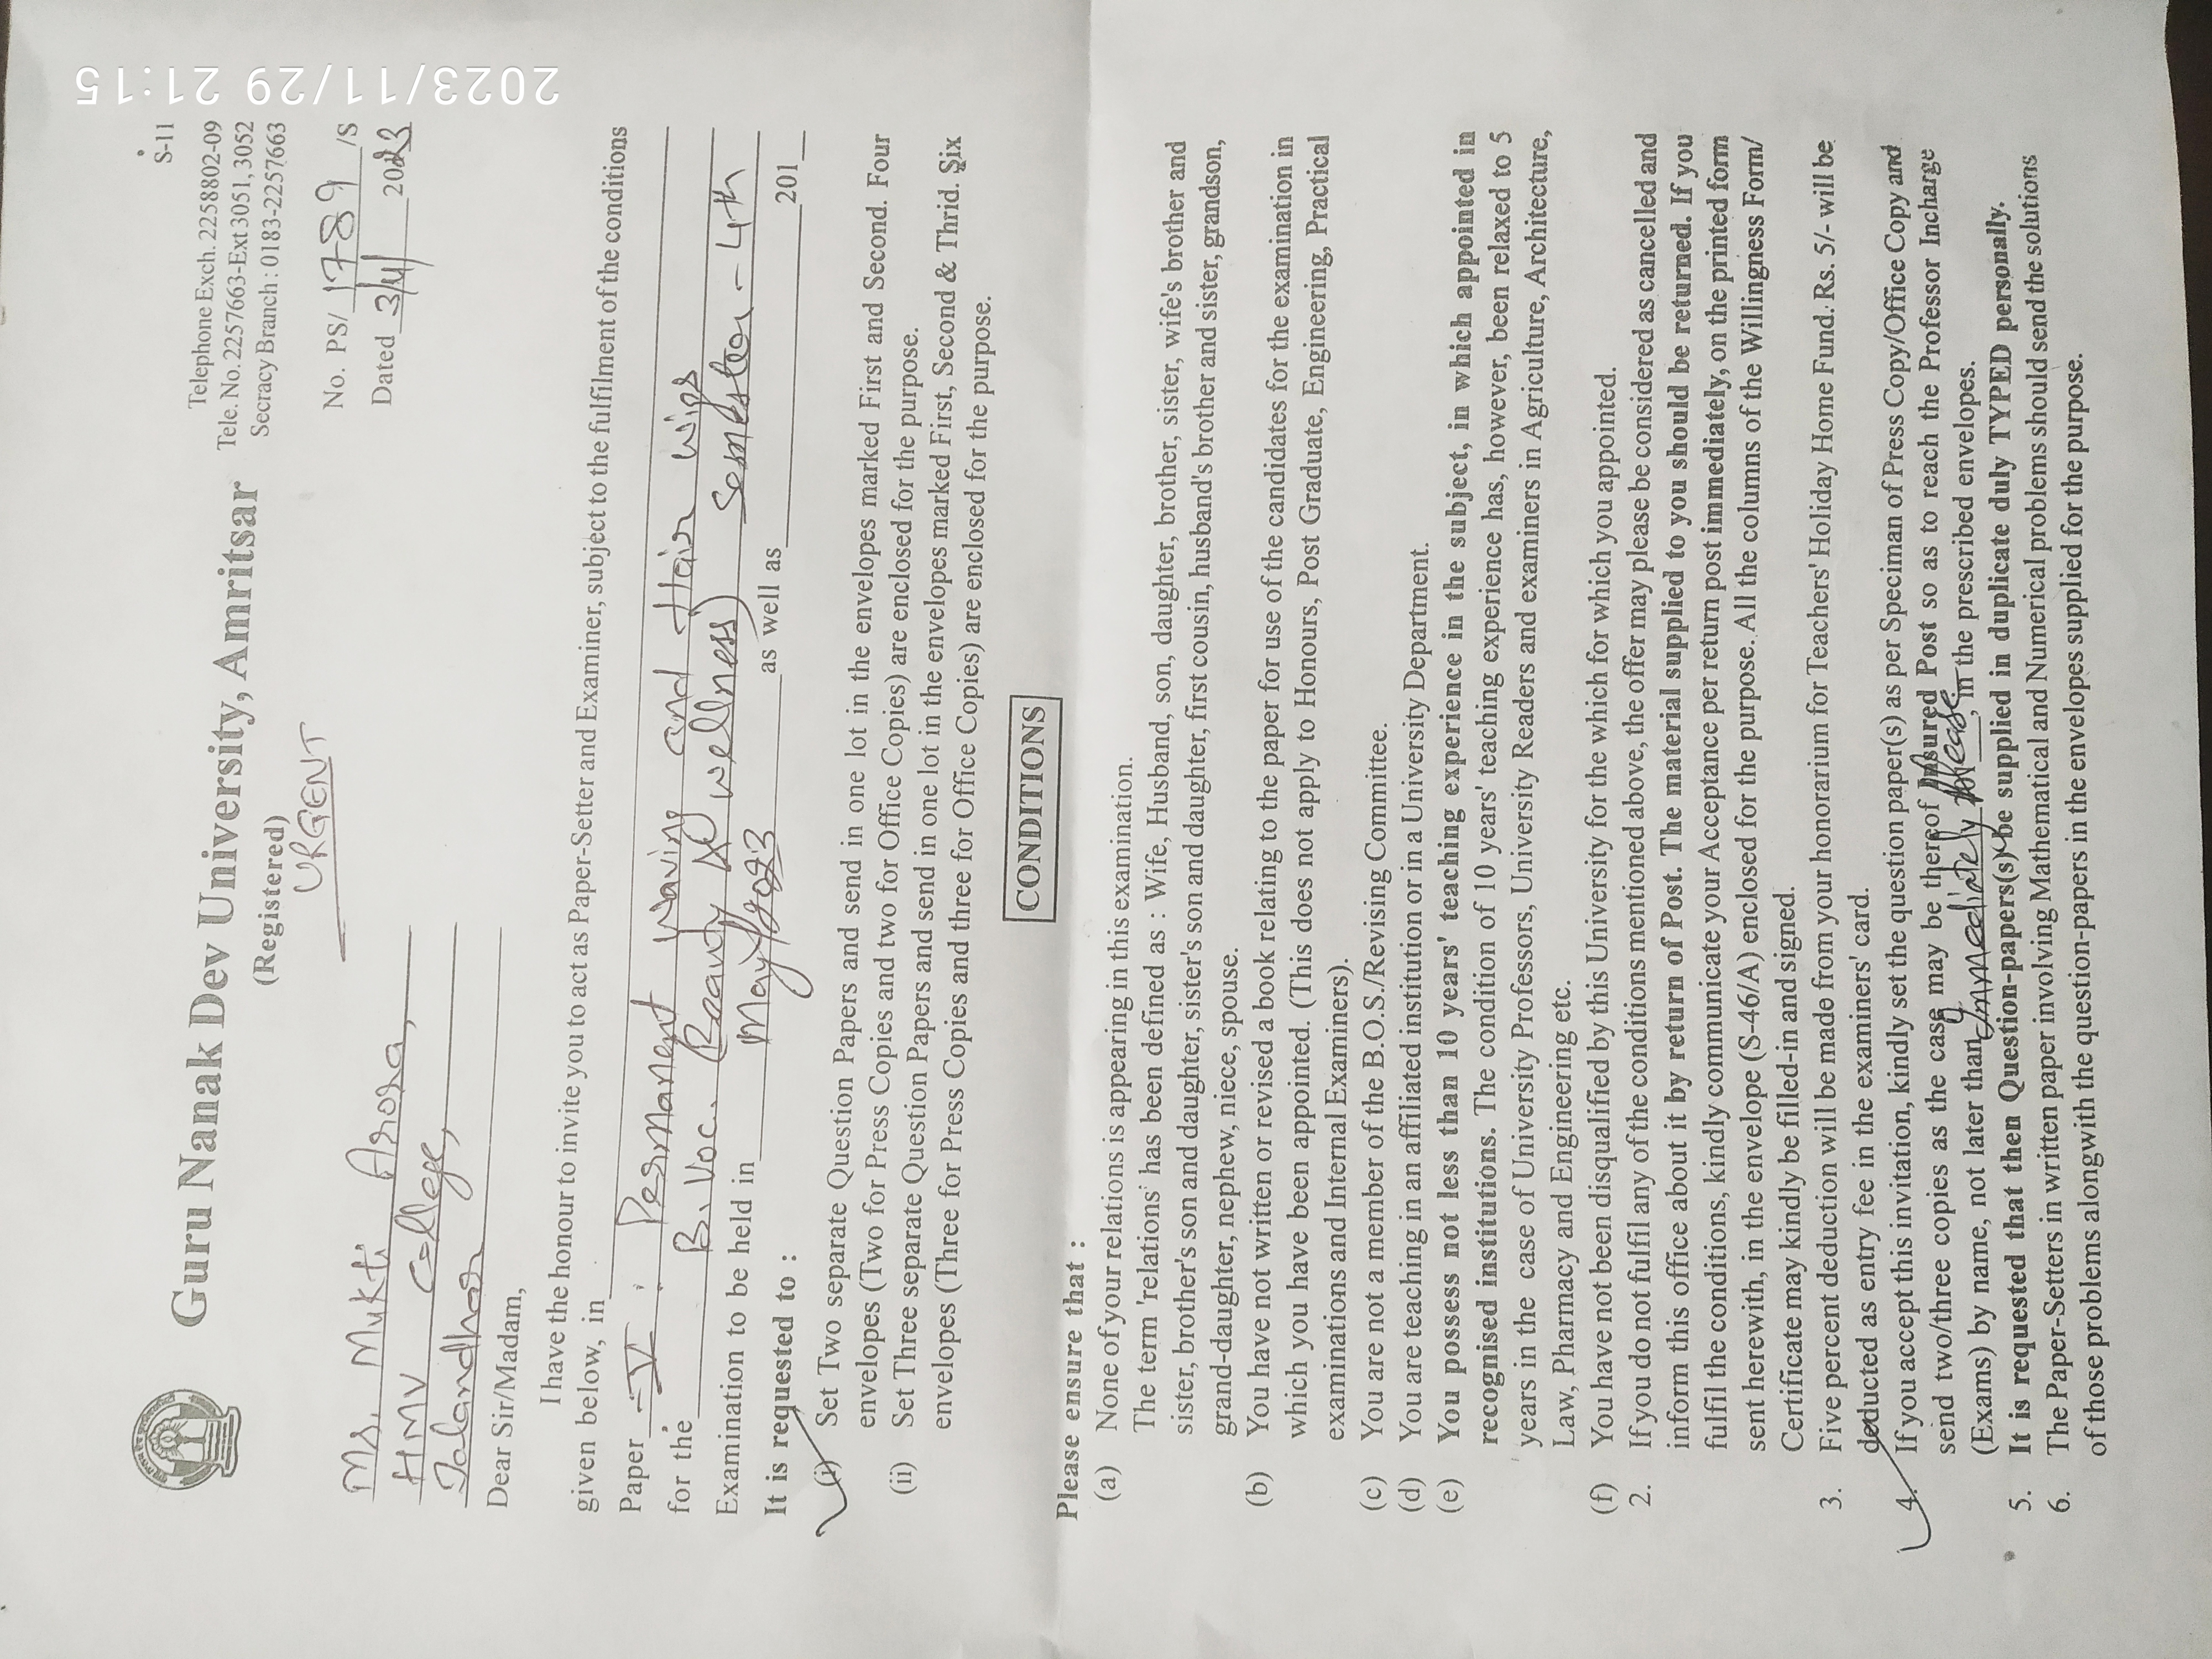 2023/11/29 21:15
S-11
Guru Nanak Dev University, Amritsar
(Registered)
URGENT
Telephone Exch. 2258802-09
Tele. No. 2257663-Ext 3051, 3052
Secracy Branch : 0183-2257663
No. PS/ 1789 /S
Dated 3/4/ 2023
Ms. Mukti Arora,
HMV College,
Jalandhar
Dear Sir/Madam,
I have the honour to invite you to act as Paper-Setter and Examiner, subject to the fulfilment of the conditions
given below, in
Paper -V : Permanent waving and Hair wigs
for the B. Voc. (Beauty & wellness) Semester - 4th
Examination to be held in May/2023 as well as 201
It is requested to :
(i) Set Two separate Question Papers and send in one lot in the envelopes marked First and Second. Four
envelopes (Two for Press Copies and two for Office Copies) are enclosed for the purpose.
(ii) Set Three separate Question Papers and send in one lot in the envelopes marked First, Second & Thrid. Six
envelopes (Three for Press Copies and three for Office Copies) are enclosed for the purpose.
CONDITIONS
Please ensure that :
(a) None of your relations is appearing in this examination.
The term 'relations' has been defined as : Wife, Husband, son, daughter, brother, sister, wife's brother and
sister, brother's son and daughter, sister's son and daughter, first cousin, husband's brother and sister, grandson,
grand-daughter, nephew, niece, spouse.
(b) You have not written or revised a book relating to the paper for use of the candidates for the examination in
which you have been appointed. (This does not apply to Honours, Post Graduate, Engineering, Practical
examinations and Internal Examiners).
(c) You are not a member of the B.O.S./Revising Committee.
(d) You are teaching in an affiliated institution or in a University Department.
(e) You possess not less than 10 years' teaching experience in the subject, in which appointed in
recognised institutions. The condition of 10 years' teaching experience has, however, been relaxed to 5
years in the case of University Professors, University Readers and examiners in Agriculture, Architecture,
Law, Pharmacy and Engineering etc.
(f) You have not been disqualified by this University for the which for which you appointed.
2. If you do not fulfil any of the conditions mentioned above, the offer may please be considered as cancelled and
inform this office about it by return of Post. The material supplied to you should be returned. If you
fulfil the conditions, kindly communicate your Acceptance per return post immediately, on the printed form
sent herewith, in the envelope (S-46/A) enclosed for the purpose. All the columns of the Willingness Form/
Certificate may kindly be filled-in and signed.
3. Five percent deduction will be made from your honorarium for Teachers' Holiday Home Fund. Rs. 5/- will be
deducted as entry fee in the examiners' card.
4. If you accept this invitation, kindly set the question paper(s) as per Speciman of Press Copy/Office Copy and
send two/three copies as the case may be thereof Insured Post so as to reach the Professor Incharge
(Exams) by name, not later than Immediately please, in the prescribed envelopes.
5. It is requested that then Question-papers(s) be supplied in duplicate duly TYPED personally.
6. The Paper-Setters in written paper involving Mathematical and Numerical problems should send the solutions
of those problems alongwith the question-papers in the envelopes supplied for the purpose.